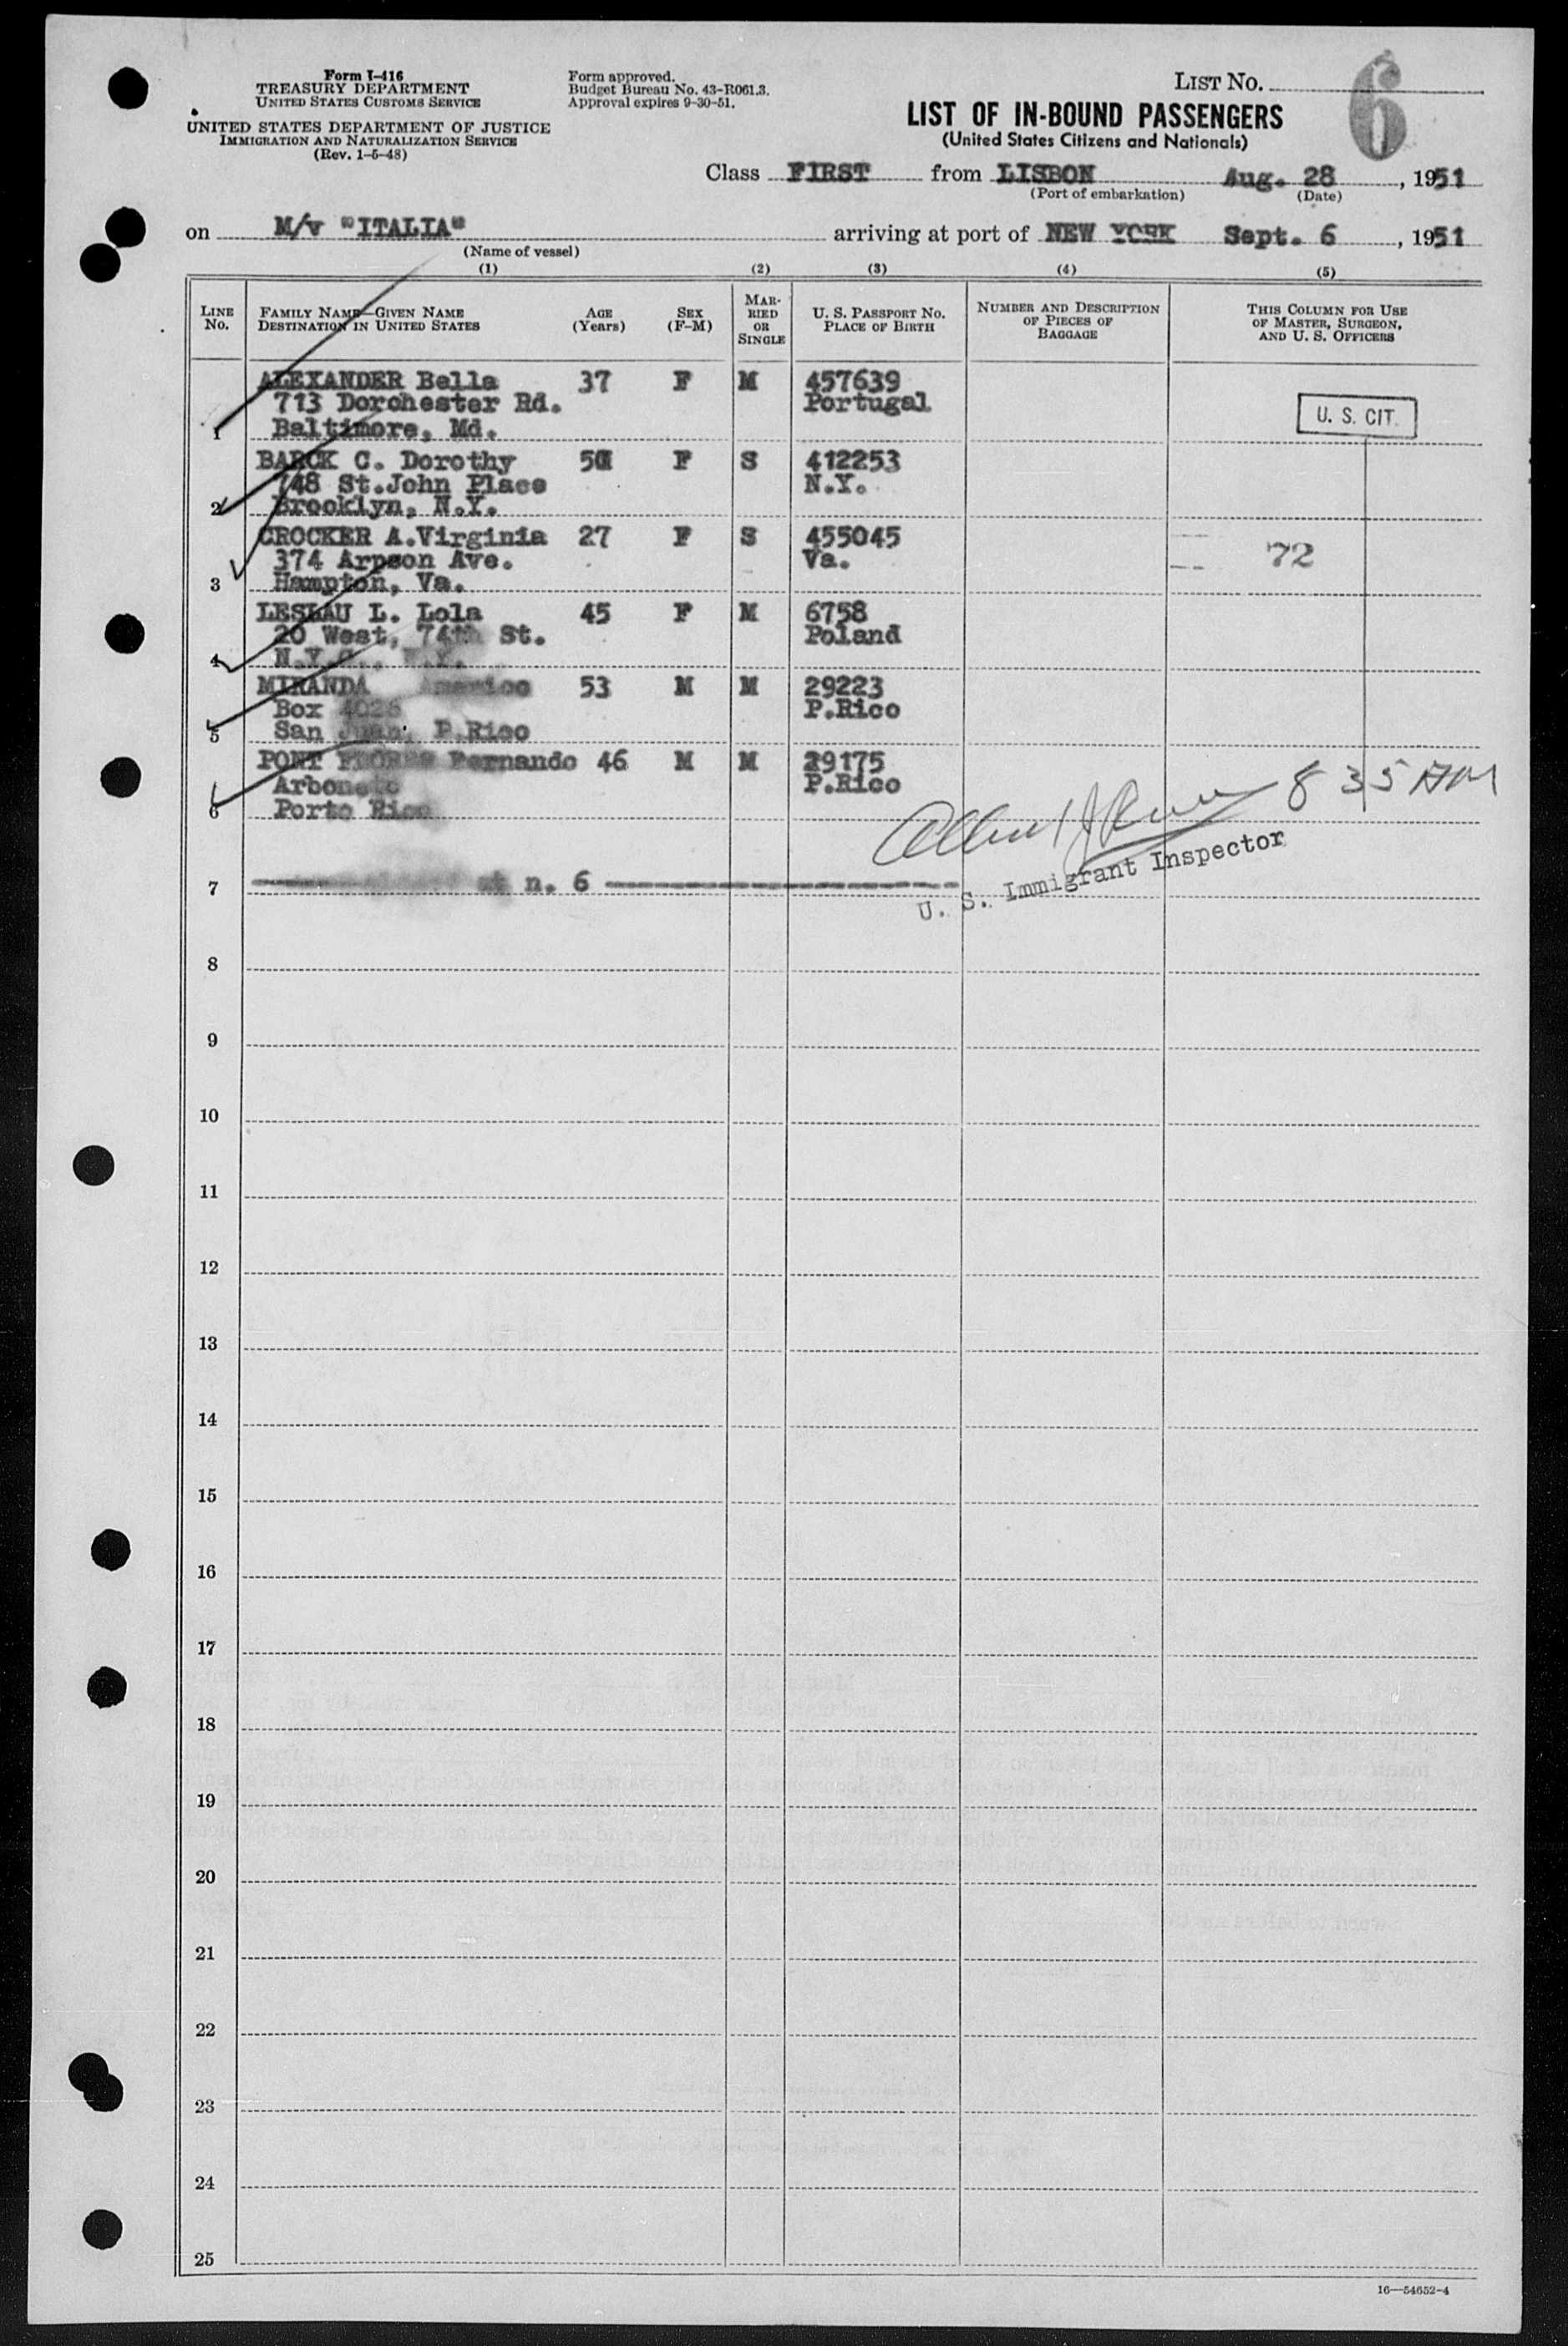 Form I-416
TREASURY DEPARTMENT
UNITED STATES CUSTOMS SERVICE
UNITED STATES DEPARTMENT OF JUSTICE
IMMIGRATION AND NATURALIZATION SERVICE
(Rev. 1-5-48)
Form approved.
Budget Bureau No. 43-R061.3.
Approval expires 9-30-51.
LIST NO. 6
LIST OF IN-BOUND PASSENGERS
(United States Citizens and Nationals)
Class FIRST from LISBON Aug. 28, 1951
(Port of embarkation) (Date)
on M/v "ITALIA" arriving at port of NEW YORK Sept. 6, 1951
(Name of vessel)
(1) (2) (3) (4) (5)
LINE NO.
FAMILY NAME—GIVEN NAME
DESTINATION IN UNITED STATES
AGE (Years)
SEX (F-M)
MARRIED OR SINGLE
U. S. PASSPORT NO.
PLACE OF BIRTH
NUMBER AND DESCRIPTION OF PIECES OF BAGGAGE
THIS COLUMN FOR USE OF MASTER, SURGEON, AND U. S. OFFICERS
ALEXANDER Bella 37 F M 457639
713 Dorchester Rd. Portugal
1 Baltimore, Md. U. S. CIT.
BARCK C. Dorothy F S 412253
748 St.John Place N.Y.
2 Brooklyn, N.Y.
CROCKER A.Virginia 27 F S 455045
374 Ave. Va. 72
3 Hampton, Va.
LESLAU L. Lola 45 F M 6758
20 West, 74th St. Poland
4 N.Y.C., N.Y.
MIRANDA Americo 53 M M 29223
Box 4026 P.Rico
5 San Juan, P.Rico
PONT FLORES Fernando 46 M M 29175
P.Rico
6 Porto Rico
8 35 AM
U. S. Immigrant Inspector
7 at n. 6
8
9
10
11
12
13
14
15
16
17
18
19
20
21
22
23
24
25
16—54652-4